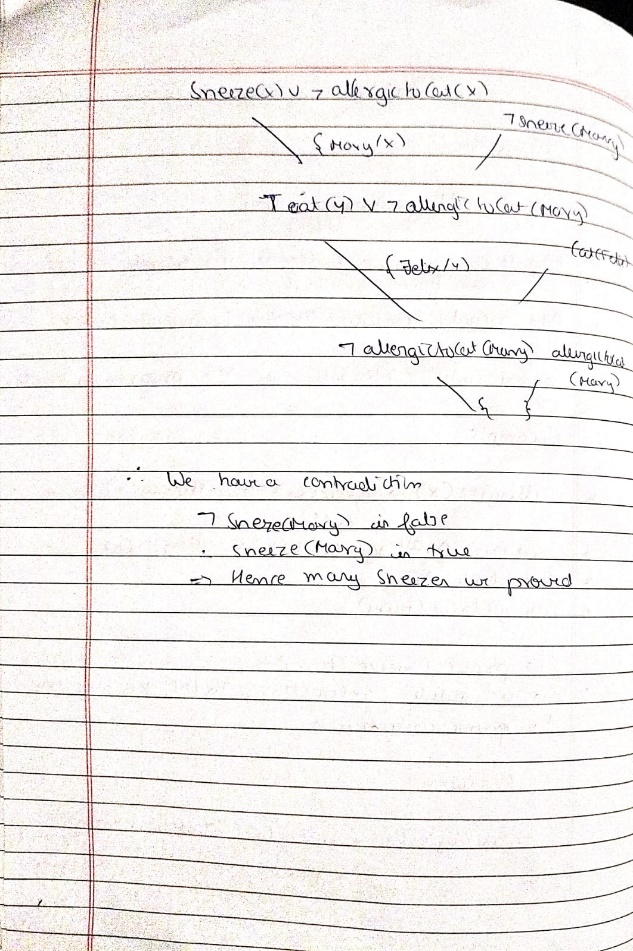 Sneeze(x) ∨ ¬ allergictoCat(x)
¬ Sneeze(Mary)
{Mary/x}
¬ cat(y) ∨ ¬ allergictoCat(Mary)
Cat(Felix)
{Felix/y}
¬ allergictoCat(Mary) allergictocat
(Mary)
{ }
∴ We have a contradiction
¬ Sneeze(Mary) is false
∴ Sneeze(Mary) is true
⇒ Hence mary Sneezes is proved